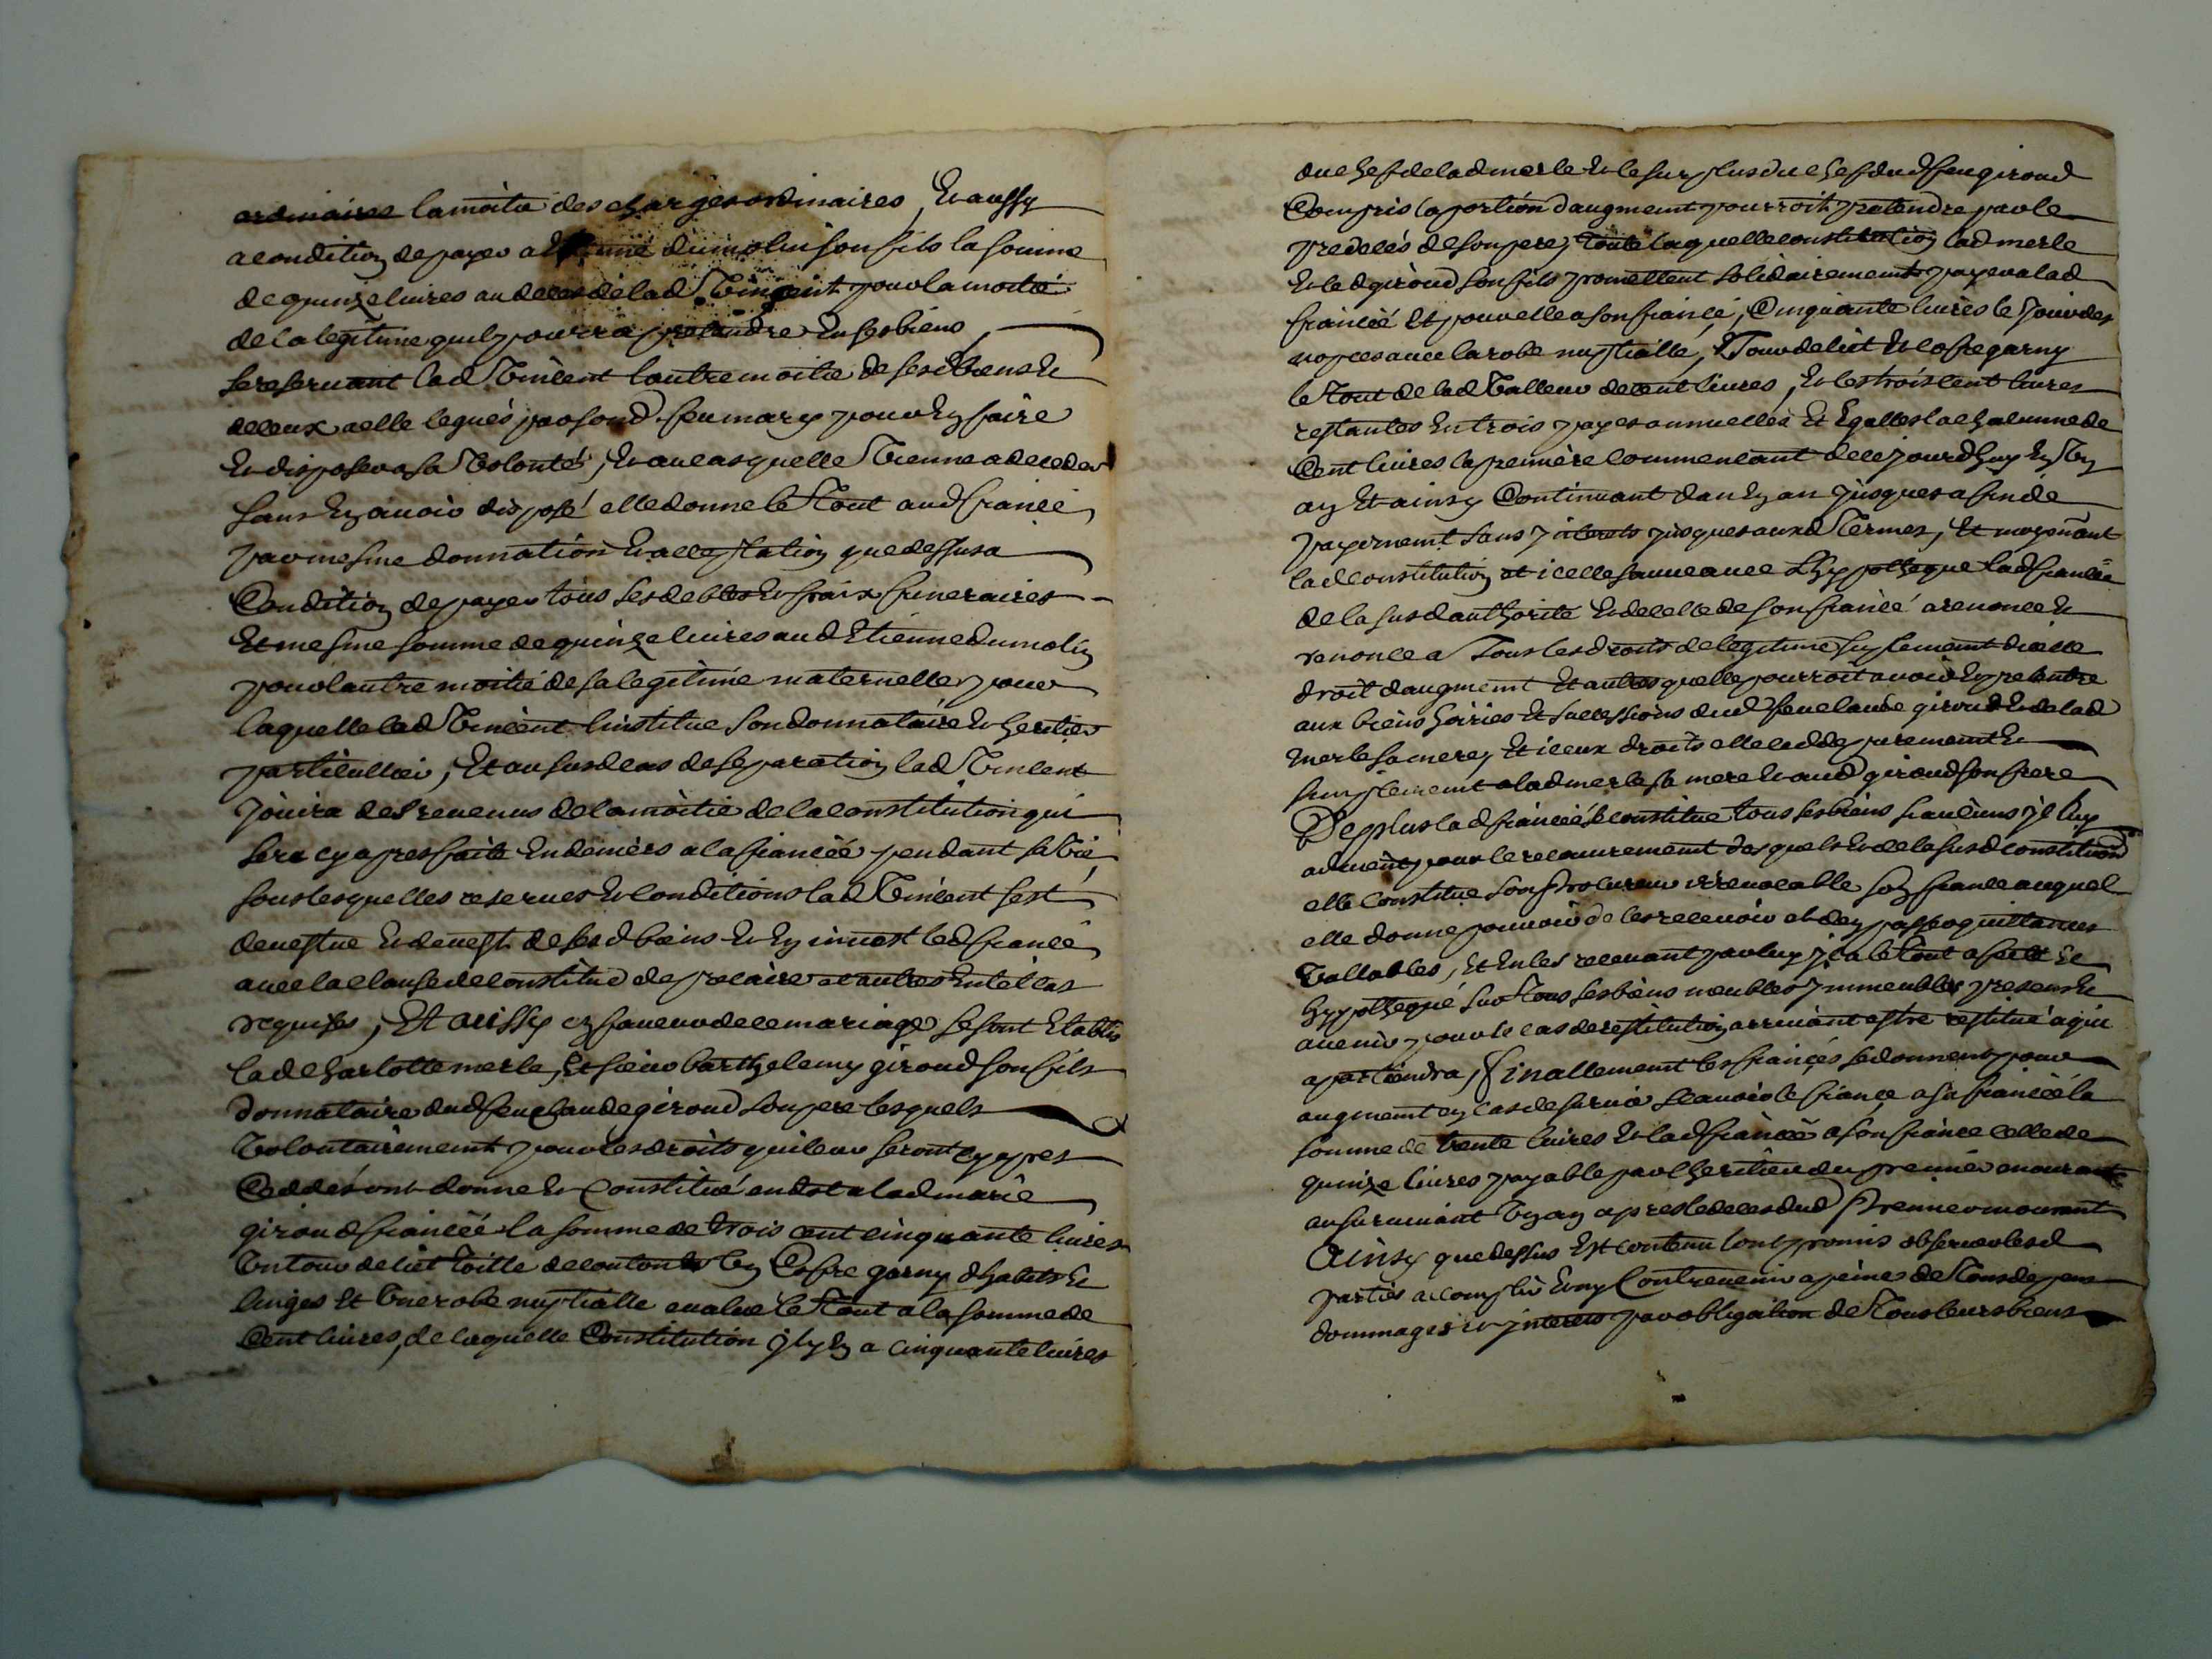 ordinaires la moitié des charges ordinaires, Et aussy
a condition de payer a Etienne dumolin son fils la somme
de quinze livres au deces de lad Vincent pour la moitié
de la legitime quil pourra pretendre En ses biens
se reservant lad Vincent l'autre moitié de ses biens Et
de ceux a elle legués par sond feu mary pour En faire
Et disposer a sa Volonté, Et au cas quelle Vienne a deceder
sans En avoir disposé elle donne le Tout aud fiancé
par mesme donnation Et que dessus a
Condition de payer tous ses debtes Et fraix funeraires
Et mesme somme de quinze livres aud Etienne dumolin
pour lautre moitié de sa legitime maternelle pour
laquelle lad Vincent linstitue son donnataire Et heritier
particullier, Et au susd cas de separation lad Vincent
Jouira des revenus de la moitié de la constitution qui
sera cy apres faite En deniers a la fiancéé pendant sa Vie,
sous lesquelles reserves Et conditions lad Vincent sest
devestue Et devest de sesd biens Et En invest led fiancé
avec la clause de constitut de precaire et autres En tel cas
requises, Et aussy en faveur de ce mariage se sont Etablis
lad charlotte merle, Et sieur barthelemy giroud son fils
donnataire dud feu claude giroud son pere lesquels
Volontairement pour les droits qui leur seront cy apres
Ceddés ont donné Et Constitué en dot a lad marie
giroud fiancéé la somme de trois cent cinquante livres
Vn tour de lict toille de couton Vn Coffre garny dhabits Et
linges Et Vne robe nuptialle evalué le Tout a la somme de
Cent livres, de laquelle Constitution Jl y En a cinquante livres
du chef de lad merle Et le surplus du chef dud feu giroud
Compris la portion daugment pourroit pretendre par le
predeces de son pere, toute laquelle constitution lad merle
Et led giroud son fils promettent solidairement payer a lad
fiancéé Et pour elle a son fiancé, Cinquante livres le Jour des
nopces avec la robe nuptialle, Tour de lict Et cofre garny
le Tout de lad Valleur de cent livres, Et les trois cent livres
restantes En trois payes annuelles Et Egalles la chacunne de
Cent livres la premiere commencant de ce jourdhuy En Vn
an Et ainsy Continuant dan En an Jusques a fin de
payement sans Jnterets jusques auxd Termes, Et moyenant
lad constitution et icelle sauve avec Lhypotheque lad fiancéé
de la susd authorité Et de celle de son fiancé a renoncé Et
renonce a Tous les droits de legitime suplement dicelle
droit daugment Et autres quelle pourroit avoir Et pretendre
aux biens hoiries Et successions dud feu claude giroud Et de lad
merle sa mere, Et iceux droits elle cedde purement Et
simplement a lad merle sa mere Et aud giroud son frere
De plus lad fiancéé se constitue tous ses biens
pour le recouvrement desquels Et de la susd constitution
elle constitue son procureur irrevocable son fiancé auquel
elle donne pouvoir de les recevoir et den passer quittances
Vallables, Et En les recevant par luy Jl a le Tout assuré Et
hypothequé sur Tous ses biens meubles Jmmeubles presens Et
avenir pour le cas de restitution arrivant estre restitué a qui
apartiendra, finallement les fiancés se donnent pour
augment en cas de survie scavoir le fiancé a sa fiancéé la
somme de trente livres Et lad fiancéé a son fiancé celle de
quinze livres payable par lheritier du premier mourant
au survivant Vn an apres le deces dud premier mourant
Ainsy que dessus Est contenu lont promis observer lesd
parties accomplir Et ny Contrevenir a peines de Tous depens
dommages Et Jnterets par obligation de Tous leurs biens